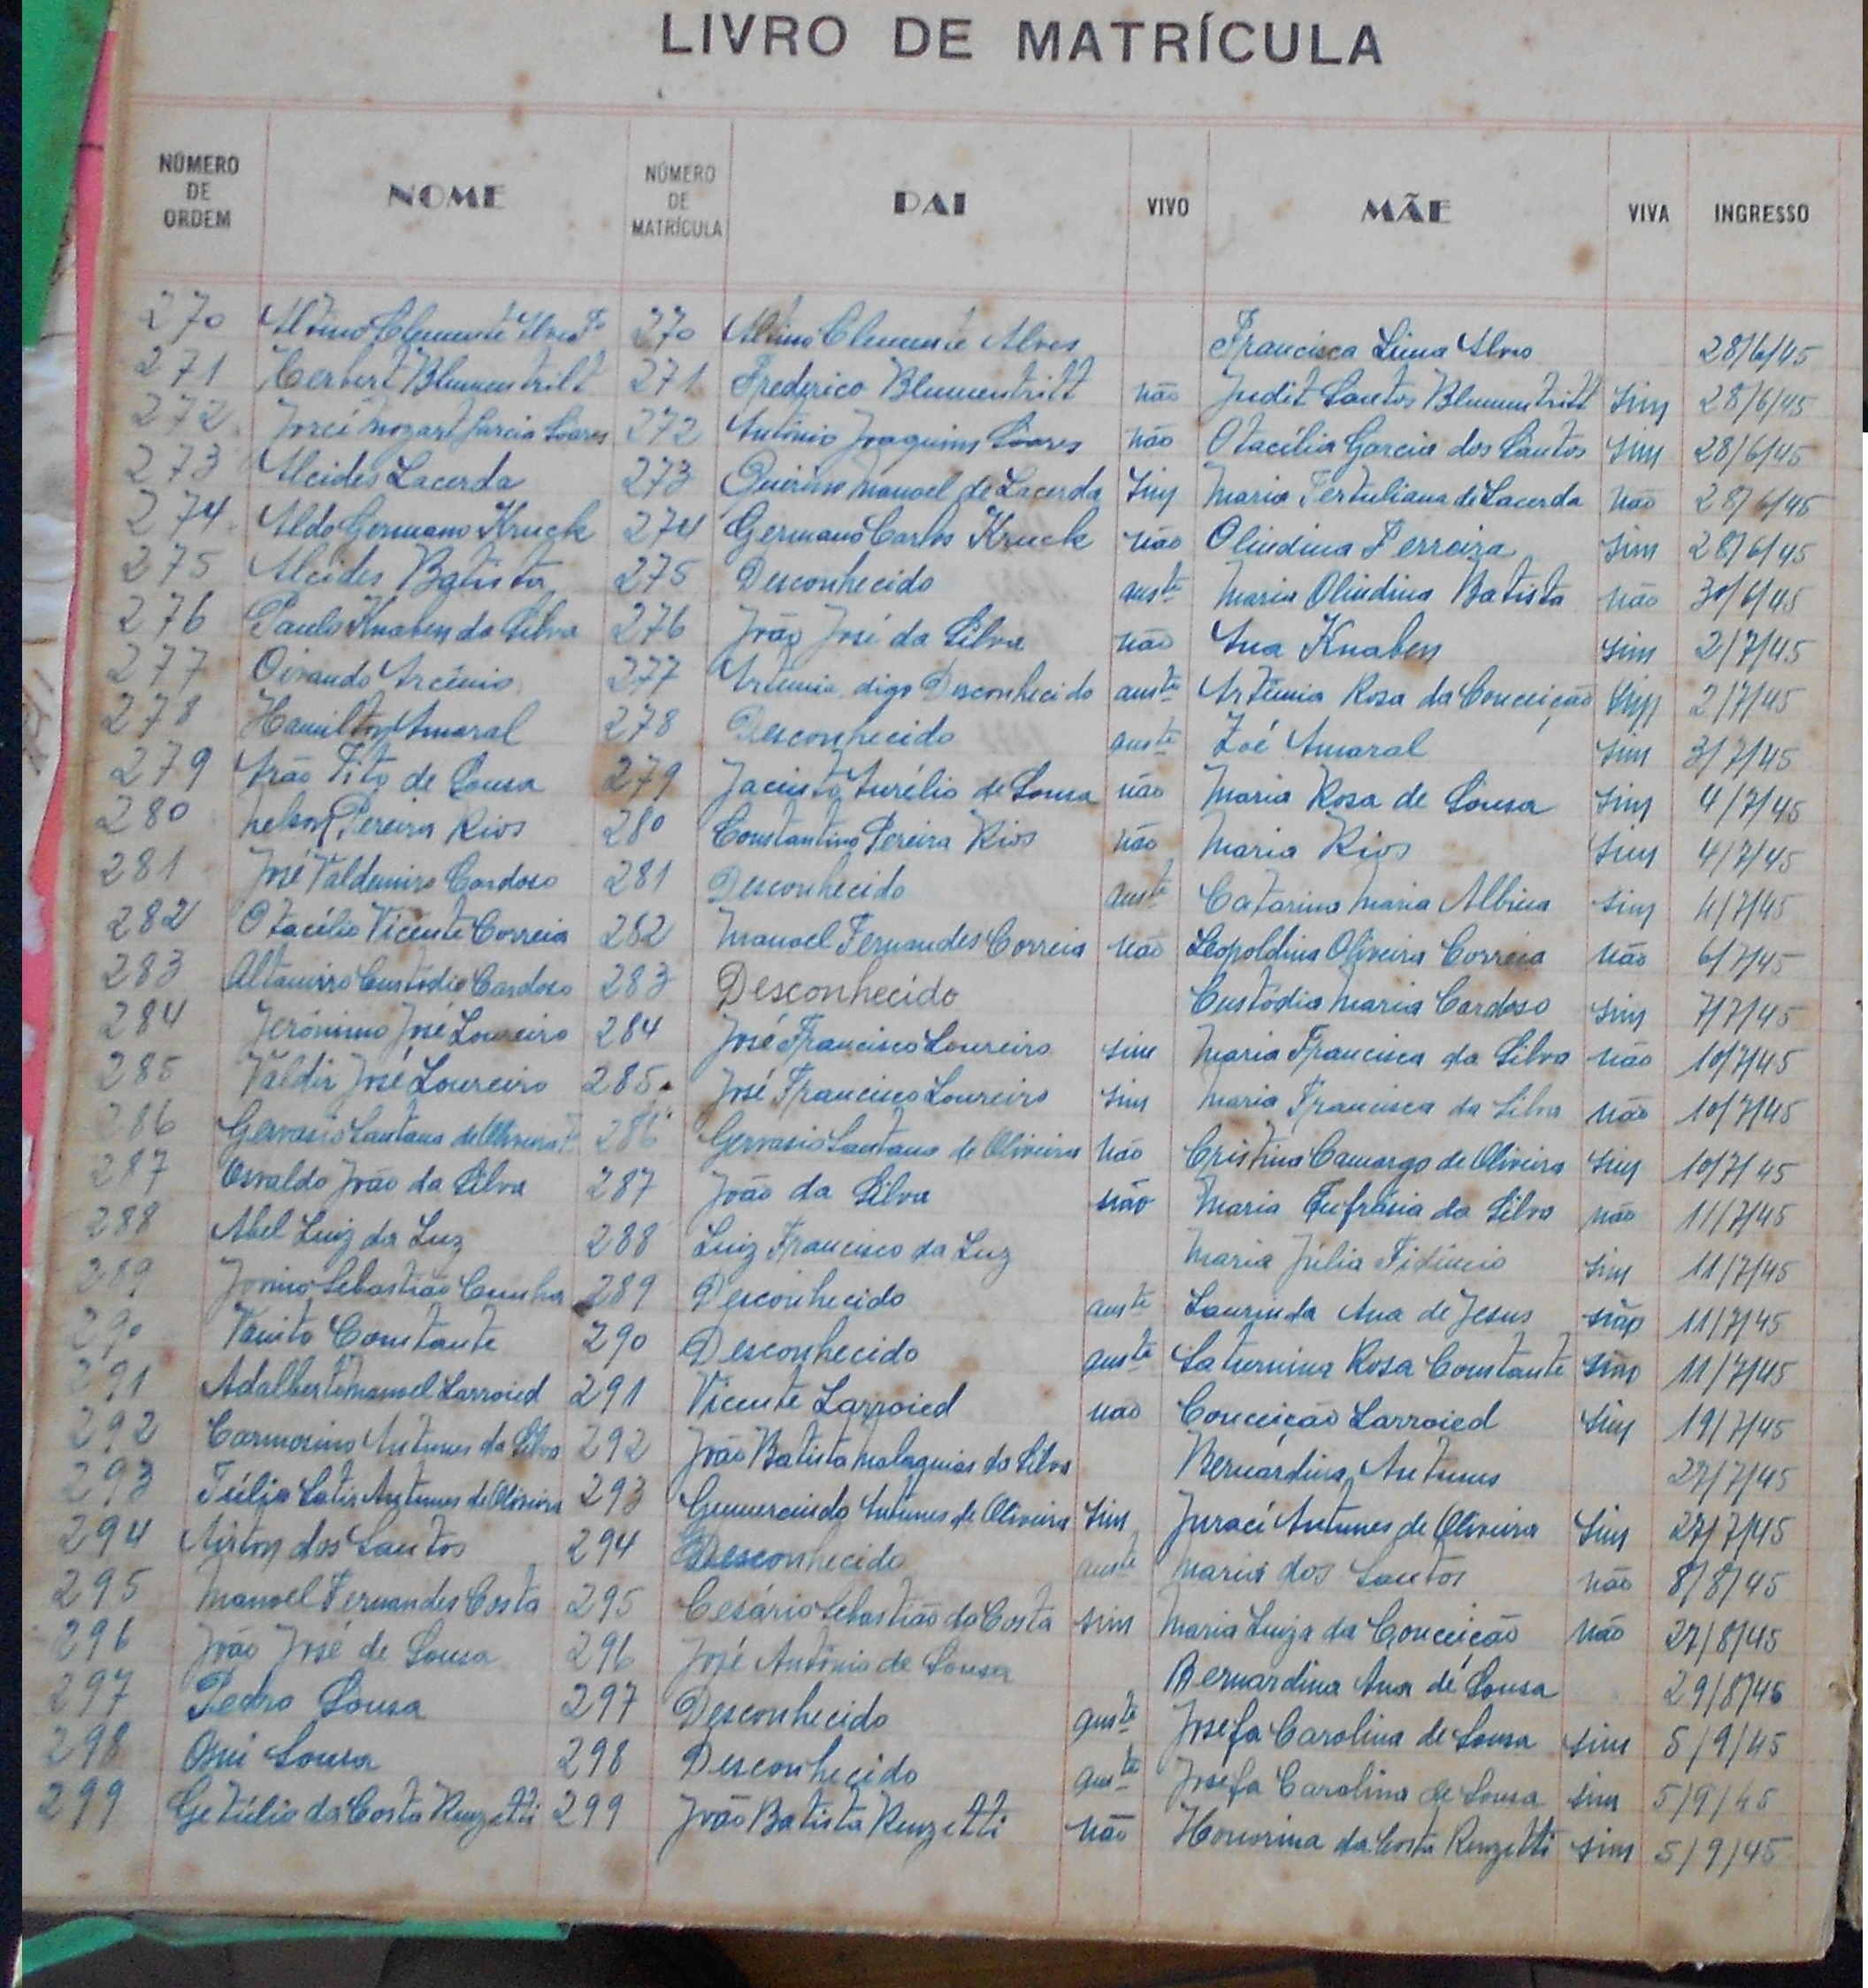 LIVRO DE MATRÍCULA
NÚMERO DE ORDEM NOME NÚMERO DE MATRÍCULA PAI VIVO MÃE VIVA INGRESSO
270 Altino Clemente Alves Fº 270 Altino Clemente Alves Francisca Lima Alves 28/6/45
271 Herbert Blumentritt 271 Frederico Blumentritt não Judit Santos Blumentritt sim 28/6/45
272 José Mozart Garcia Soares 272 Antônio Joaquim Soares não Otacília Garcia dos Santos sim 28/6/45
273 Alcides Lacerda 273 Quirino Manoel de Lacerda sim Maria Tertuliana de Lacerda não 28/6/45
274 Aldo Germano Kruck 274 Germano Carlos Kruck não Olindina Ferreira sim 28/6/45
275 Alcides Batista 275 Desconhecido auste Maria Olindina Batista não 30/6/45
276 Paulo Knaben da Silva 276 João José da Silva não Ana Knaben sim 2/7/45
277 Oivando Arcênio 277 Artemia digo Desconhecido auste Artêmia Rosa da Conceição sim 2/7/45
278 Hamilton Amaral 278 Desconhecido auste Zoé Amaral sim 3/7/45
279 Arão Tito de Sousa 279 Jacinto Aurélio de Sousa não Maria Rosa de Sousa sim 4/7/45
280 Nelson Pereira Rios 280 Constantino Pereira Rios não Maria Rios sim 4/7/45
281 José Valdemiro Cardoso 281 Desconhecido auste Catarina Maria Albina sim 4/7/45
282 Otacílio Vicente Correia 282 Manoel Fernandes Correia não Leopoldina Oliveira Correia não 6/7/45
283 Altamiro Custódio Cardoso 283 Desconhecido Custódia Maria Cardoso sim 7/7/45
284 Jerônimo José Loureiro 284 José Francisco Loureiro sim Maria Francisca da Silva não 10/7/45
285 Valdir José Loureiro 285 José Francisco Loureiro sim Maria Francisca da Silva não 10/7/45
286 Gervasio Santana de Oliveira Fº 286 Gervasio Santana de Oliveira não Cristina Camargo de Oliveira sim 10/7/45
287 Osvaldo João da Silva 287 João da Silva não Maria Eufrásia da Silva não 11/7/45
288 Abel Luiz da Luz 288 Luiz Francisco da Luz Maria Júlia Fidincio sim 11/7/45
289 Jovino Sebastião Cunha 289 Desconhecido auste Laurinda Ana de Jesus não 11/7/45
290 Vanito Constante 290 Desconhecido auste Saturnina Rosa Constante não 11/7/45
291 Adalberto Manoel Larroied 291 Vicente Larroied não Conceição Larroied sim 19/7/45
292 Carmorino Antunes da Silva 292 João Batista Malaquias da Silva Bernardina Antunes 27/7/45
293 Túlio Latir Antunes de Oliveira 293 Gumercindo Antunes de Oliveira sim Juraci Antunes de Oliveira sim 27/7/45
294 Airton dos Santos 294 Desconhecido auste Maria dos Santos não 8/8/45
295 Manoel Fernandes Costa 295 Cesário Sebastião da Costa sim Maria Luiza da Conceição não 27/8/45
296 João José de Sousa 296 José Antônio de Sousa Bernardina Ana de Sousa 29/8/45
297 Pedro Sousa 297 Desconhecido auste Josefa Carolina de Sousa sim 5/9/45
298 Osni Sousa 298 Desconhecido auste Josefa Carolina de Sousa sim 5/9/45
299 Getúlio da Costa Renzetti 299 João Batista Renzetti não Honorina da Costa Renzetti sim 5/9/45